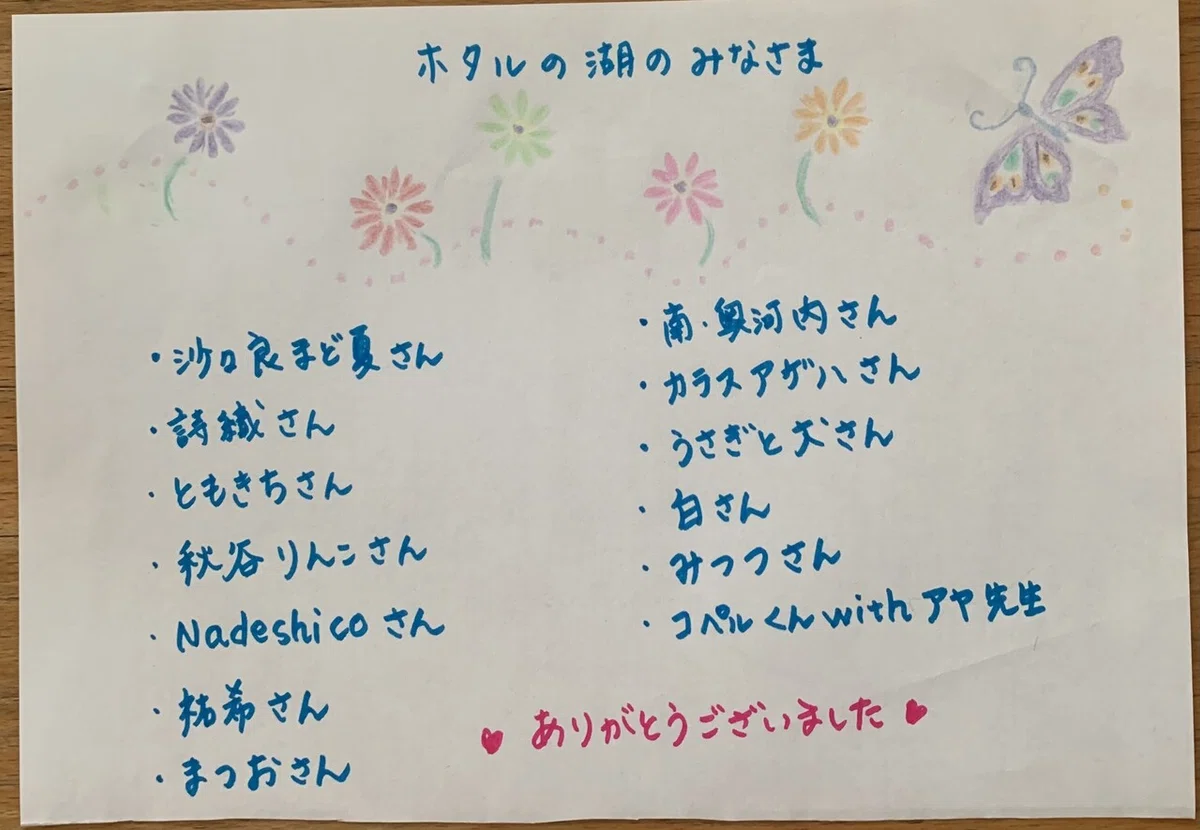 ホタルの湖のみなさま
・沙々良まど夏さん
・詩織さん
・ともきちさん
・秋谷りんこさん
・Nadeshicoさん
・祐希さん
・まつおさん
・南・奥河内さん
・カラスアゲハさん
・うさぎと犬さん
・白さん
・みつつさん
・コペルくんwithアヤ先生
♥ありがとうございました♥